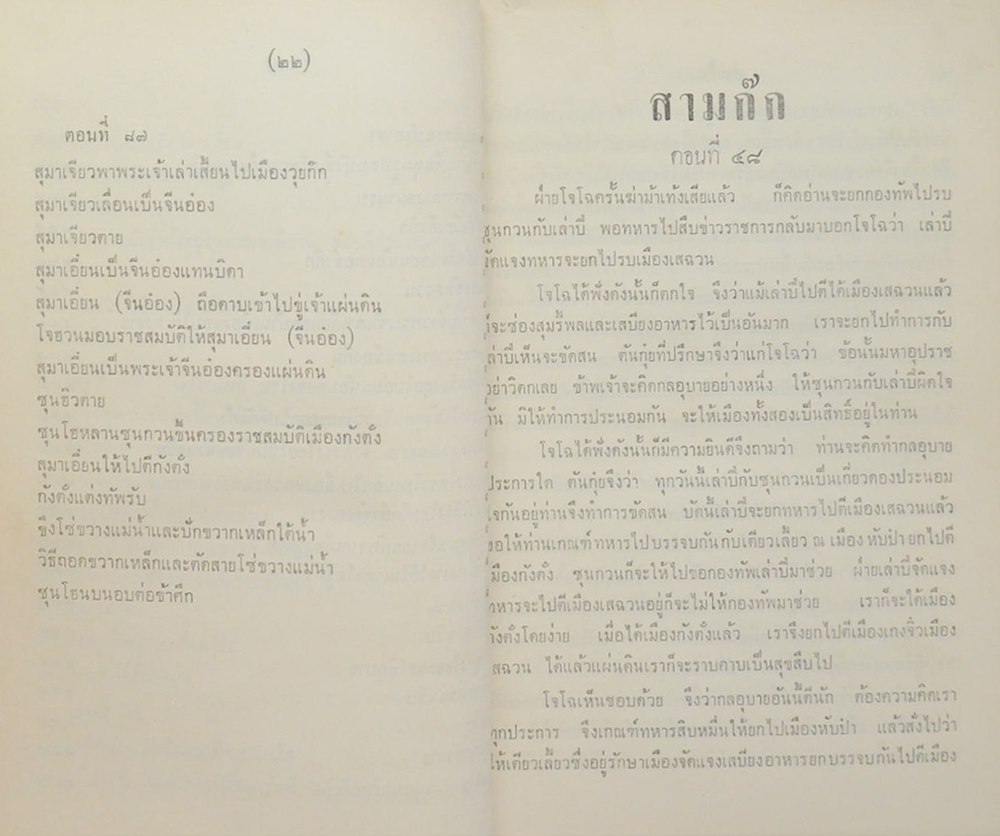 (๒๒)
ตอนที่ ๘๗
สุมาเจียวพาพระเจ้าเล่าเสี้ยนไปเมืองวุยก๊ก
สุมาเจียวเลื่อนเป็นจีนอ๋อง
สุมาเจียวตาย
สุมาเอี๋ยนเป็นจีนอ๋องแทนบิดา
สุมาเอี๋ยน (จีนอ๋อง) ถือดาบเข้าไปขู่เจ้าแผ่นดิน
โจฮวนมอบราชสมบัติให้สุมาเอี๋ยน (จีนอ๋อง)
สุมาเอี๋ยนเป็นพระเจ้าจีนอ๋องครองแผ่นดิน
ซุนฮิวตาย
ซุนโฮหลานซุนกวนขึ้นครองราชสมบัติเมืองกังตั๋ง
สุมาเอี๋ยนให้ไปตีกังตั๋ง
กังตั๋งแต่งทัพรับ
ขึงโซ่ขวางแม่น้ำและปักขวากเหล็กใต้น้ำ
วิธีถอดขวากเหล็กและตัดสายโซ่ขวางแม่น้ำ
ซุนโฮนบนอบต่อข้าศึก
สามก๊ก
ตอนที่ ๔๘
ฝ่ายโจโฉครั้นฆ่าม้าเท้งเสียแล้ว ก็คิดอ่านจะยกกองทัพไปรบ
ซุนกวนกับเล่าปี่ พอทหารไปสืบข่าวราชการกลับมาบอกโจโฉว่า เล่าปี่
จัดแจงทหารจะยกไปรบเมืองเสฉวน
โจโฉได้ฟังดังนั้นก็ตกใจ จึงว่าแม้เล่าปี่ไปตีได้เมืองเสฉวนแล้ว
ก็จะซ่องสุมรี้พลและเสบียงอาหารไว้เป็นอันมาก เราจะยกไปทำการกับ
เล่าปี่เห็นจะขัดสน ตันกุ๋ยที่ปรึกษาจึงว่าแก่โจโฉว่า ข้อนั้นมหาอุปราช
อย่าวิตกเลย ข้าพเจ้าจะคิดกลอุบายอย่างหนึ่ง ให้ซุนกวนกับเล่าปี่ผิดใจ
กัน มิให้ทำการประนอมกัน จะให้เมืองทั้งสองเป็นสิทธิ์อยู่ในท่าน
โจโฉได้ฟังดังนั้นก็มีความยินดีจึงถามว่า ท่านจะคิดทำกลอุบาย
ประการใด ตันกุ๋ยจึงว่า ทุกวันนี้เล่าปี่กับซุนกวนเป็นเกี่ยวดองประนอม
ใจกันอยู่ท่านจึงทำการขัดสน บัดนี้เล่าปี่จะยกทหารไปตีเมืองเสฉวนแล้ว
ขอให้ท่านเกณฑ์ทหารไปบรรจบกันกับเตียวเลี้ยว ณ เมืองหับป๋า ยกไปตี
เมืองกังตั๋ง ซุนกวนก็จะให้ไปขอกองทัพเล่าปี่มาช่วย ฝ่ายเล่าปี่จัดแจง
ทหารจะไปตีเมืองเสฉวนอยู่ก็จะไม่ให้กองทัพมาช่วย เราก็จะได้เมือง
กังตั๋งโดยง่าย เมื่อได้เมืองกังตั๋งแล้ว เราจึงยกไปตีเมืองเกงจิ๋วเมือง
เสฉวน ได้แล้วแผ่นดินเราก็จะราบคาบเป็นสุขสืบไป
โจโฉเห็นชอบด้วย จึงว่ากลอุบายอันนี้ดีนัก ต้องความคิดเรา
ทุกประการ จึงเกณฑ์ทหารสิบหมื่นให้ยกไปเมืองหับป๋า แล้วสั่งไปว่า
ให้เตียวเลี้ยวซึ่งอยู่รักษาเมืองจัดแจงเสบียงอาหารยกบรรจบกันไปตีเมือง